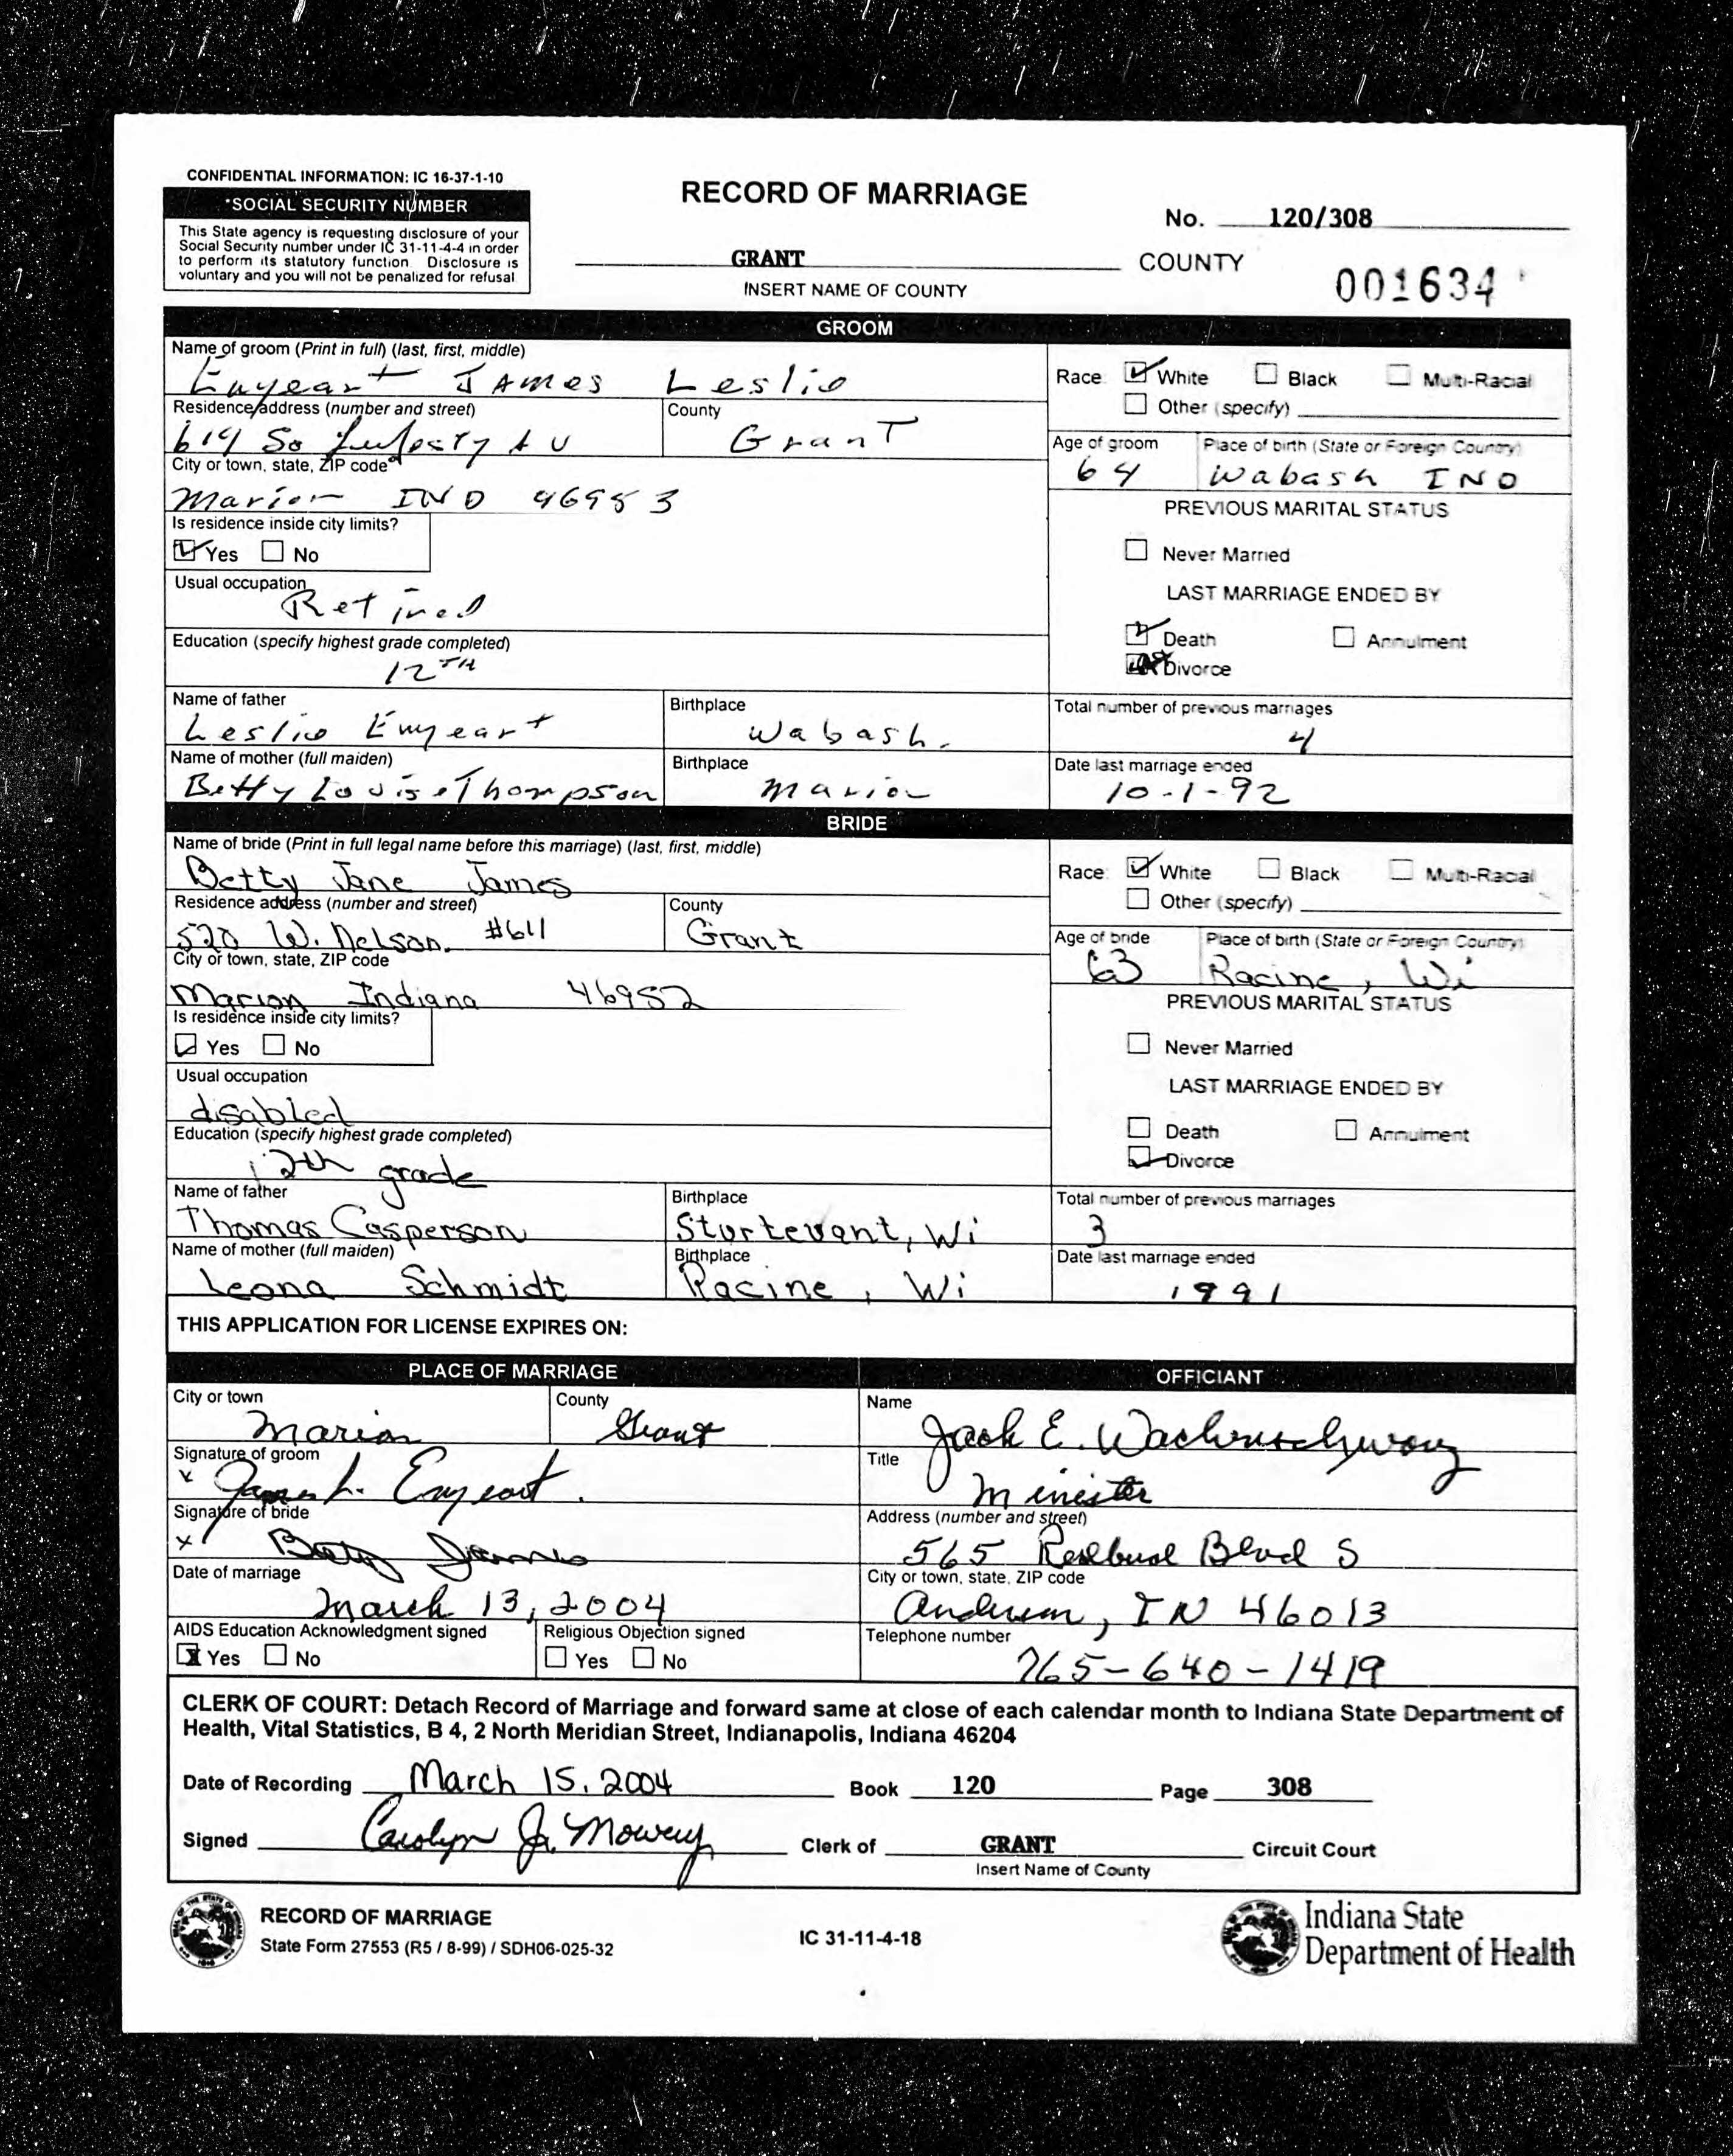 CONFIDENTIAL INFORMATION: IC 16-37-1-10
*SOCIAL SECURITY NUMBER
This State agency is requesting disclosure of your
Social Security number under IC 31-11-4-4 in order
to perform its statutory function Disclosure is
voluntary and you will not be penalized for refusal
RECORD OF MARRIAGE
No. 120/308
GRANT COUNTY
INSERT NAME OF COUNTY
001634
GROOM
Name of groom (Print in full) (last, first, middle)
Enyeart JAMES Leslie
Race: White Black Multi-Racial
Other (specify)
Residence address (number and street)
County
614 So AV
GranT
City or town, state, ZIP code
Marion IND 46953
Age of groom
Place of birth (State or Foreign Country)
64
Wabash IND
Is residence inside city limits?
Yes No
PREVIOUS MARITAL STATUS
Never Married
Usual occupation
Retired
LAST MARRIAGE ENDED BY
Death Annulment
Divorce
Education (specify highest grade completed)
12TH
Name of father
Birthplace
Leslie Enyeart
Wabash.
Total number of previous marriages
4
Name of mother (full maiden)
Birthplace
Betty Louise Thompson
Marion
Date last marriage ended
10-1-92
BRIDE
Name of bride (Print in full legal name before this marriage) (last, first, middle)
Betty Jane James
Race: White Black Multi-Racial
Other (specify)
Residence address (number and street)
County
520 W. Nelson. #611
Grant
City or town, state, ZIP code
Marion Indiana 46952
Age of bride
Place of birth (State or Foreign Country)
63
Racine, Wi
Is residence inside city limits?
Yes No
PREVIOUS MARITAL STATUS
Never Married
Usual occupation
disabled
LAST MARRIAGE ENDED BY
Death Annulment
Divorce
Education (specify highest grade completed)
12th grade
Name of father
Birthplace
Thomas Casperson
Sturtevant, Wi
Total number of previous marriages
3
Name of mother (full maiden)
Birthplace
Leona Schmidt
Racine, Wi
Date last marriage ended
1991
THIS APPLICATION FOR LICENSE EXPIRES ON:
PLACE OF MARRIAGE
OFFICIANT
City or town
County
Marion
Grant
Name
Jack E. Wachenschwanz
Signature of groom
x James L. Enyeart.
Title
Minister
Signature of bride
x Betty James
Address (number and street)
565 Redbud Blvd S
Date of marriage
March 13, 2004
City or town, state, ZIP code
Anderson, IN 46013
AIDS Education Acknowledgment signed
Yes No
Religious Objection signed
Yes No
Telephone number
765-640-1419
CLERK OF COURT: Detach Record of Marriage and forward same at close of each calendar month to Indiana State Department of
Health, Vital Statistics, B 4, 2 North Meridian Street, Indianapolis, Indiana 46204
Date of Recording March 15, 2004 Book 120 Page 308
Signed Carolyn J. Mowery Clerk of GRANT Circuit Court
Insert Name of County
RECORD OF MARRIAGE
State Form 27553 (R5 / 8-99) / SDH06-025-32
IC 31-11-4-18
Indiana State
Department of Health